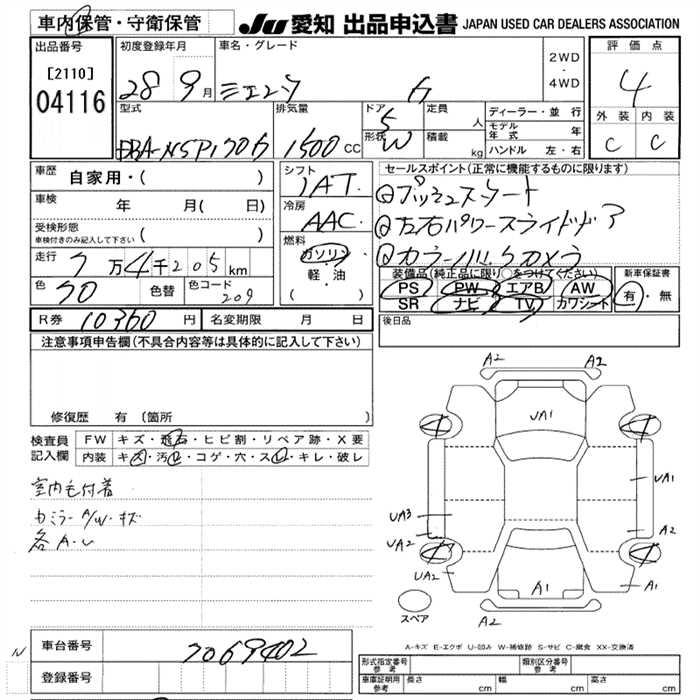 車内保管・守衛保管
JU 愛知 出品申込書 JAPAN USED CAR DEALERS ASSOCIATION
出品番号
[2110]
04116
初度登録年月
28 9月
車名・グレード
シエンタ G
2WD
・
4WD
評価点
4
外装 内装
C C
型式
DBA-NSP170G
排気量
1500 CC
ドア 5
形状 W
定員 人
積載 kg
ディーラー・並行
モデル年式 年
ハンドル 左・右
車歴 自家用・( )
車検 年 月( 日)
受検形態
車検付きのみ記入して下さい ( )
走行 7万4千205km
色 クロ 色替 色コード 209
シフト
IAT
冷房
AAC
燃料
ガソリン
・
軽・油
( )
セールスポイント(正常に機能するものに限ります)
①プッシュスタート
②左右パワースライドドア
装備品(純正品に限り○をつけてください)
PS PW エアB AW
SR ナビ TV カワシート
新車保証書
有・無
後日品
R券 10360円 名変期限 月 日
注意事項申告欄(不具合内容等は具体的に記入して下さい)
修復歴 有(箇所 )
検査員記入欄
FW キズ・飛石・ヒビ割・リペア跡・X要
内装 キズ・汚レ・コゲ・穴・スレ・キレ・破レ
室内毛付着
カミラー A/W・キズ
各A・U
A2 A2
UA1
UA1
UA3
UA2
A2
UA2
A1
A1
A2
スペア
A-キズ E-エクボ U-凹み W-補修跡 S-サビ C-腐食 XX-交換済
N
車台番号 7069402
登録番号
型式指定番号 参考
類別区分番号 参考
車庫証明用 参考 長さ cm 幅 cm 高さ cm